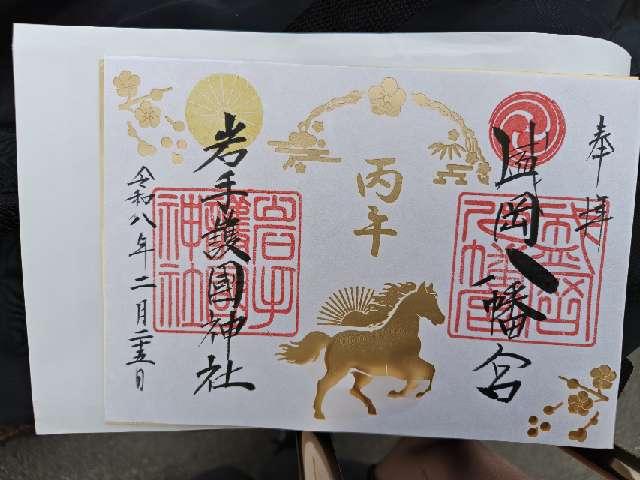 奉拝
盛岡八幡宮
丙午
岩手護國神社
岩手護國神社
令和八年二月二十五日